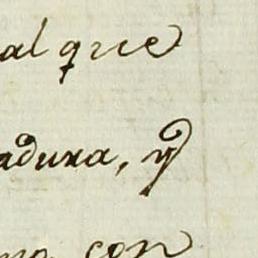 al que
adura, y
con